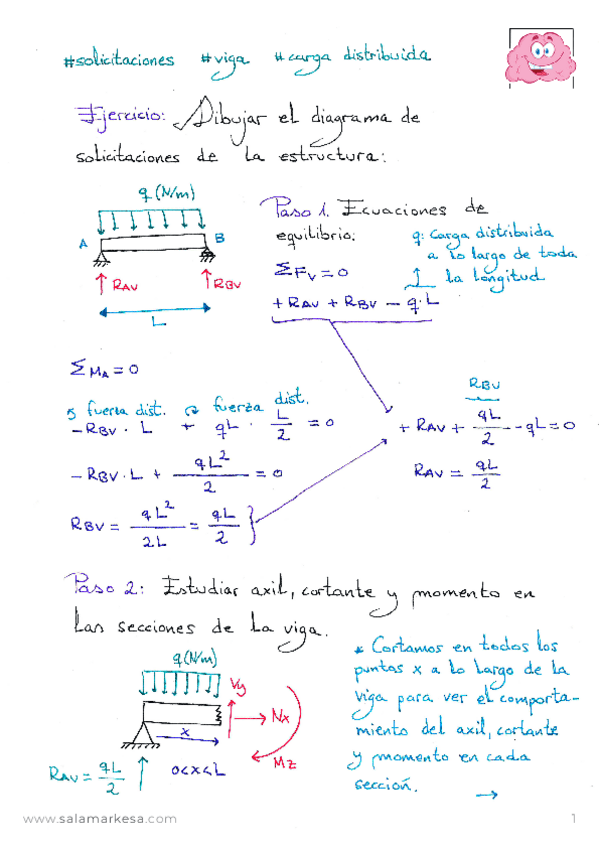 #solicitaciones #viga #carga distribuida
Ejercicio: Dibujar el diagrama de
solicitaciones de la estructura:
q (N/m)
A B
RAV RBV
L
Paso 1. Ecuaciones de
equilibrio:
q: Carga distribuida
a lo largo de toda
la longitud
ΣFV = 0
+ RAV + RBV - q·L
ΣMA = 0
fuerza dist. fuerza dist.
- RBV · L + qL · L/2 = 0
- RBV · L + qL²/2 = 0
RBV = qL²/2L = qL/2
RBV
+ RAV + qL/2 - qL = 0
RAV = qL/2
Paso 2: Estudiar axil, cortante y momento en
las secciones de la viga.
q (N/m)
Vy
Nx
Mz
x
RAV = qL/2
0<x<L
* Cortamos en todos los
puntos x a lo largo de la
viga para ver el comporta-
miento del axil, cortante
y momento en cada
sección. →
www.salamarkesa.com 1